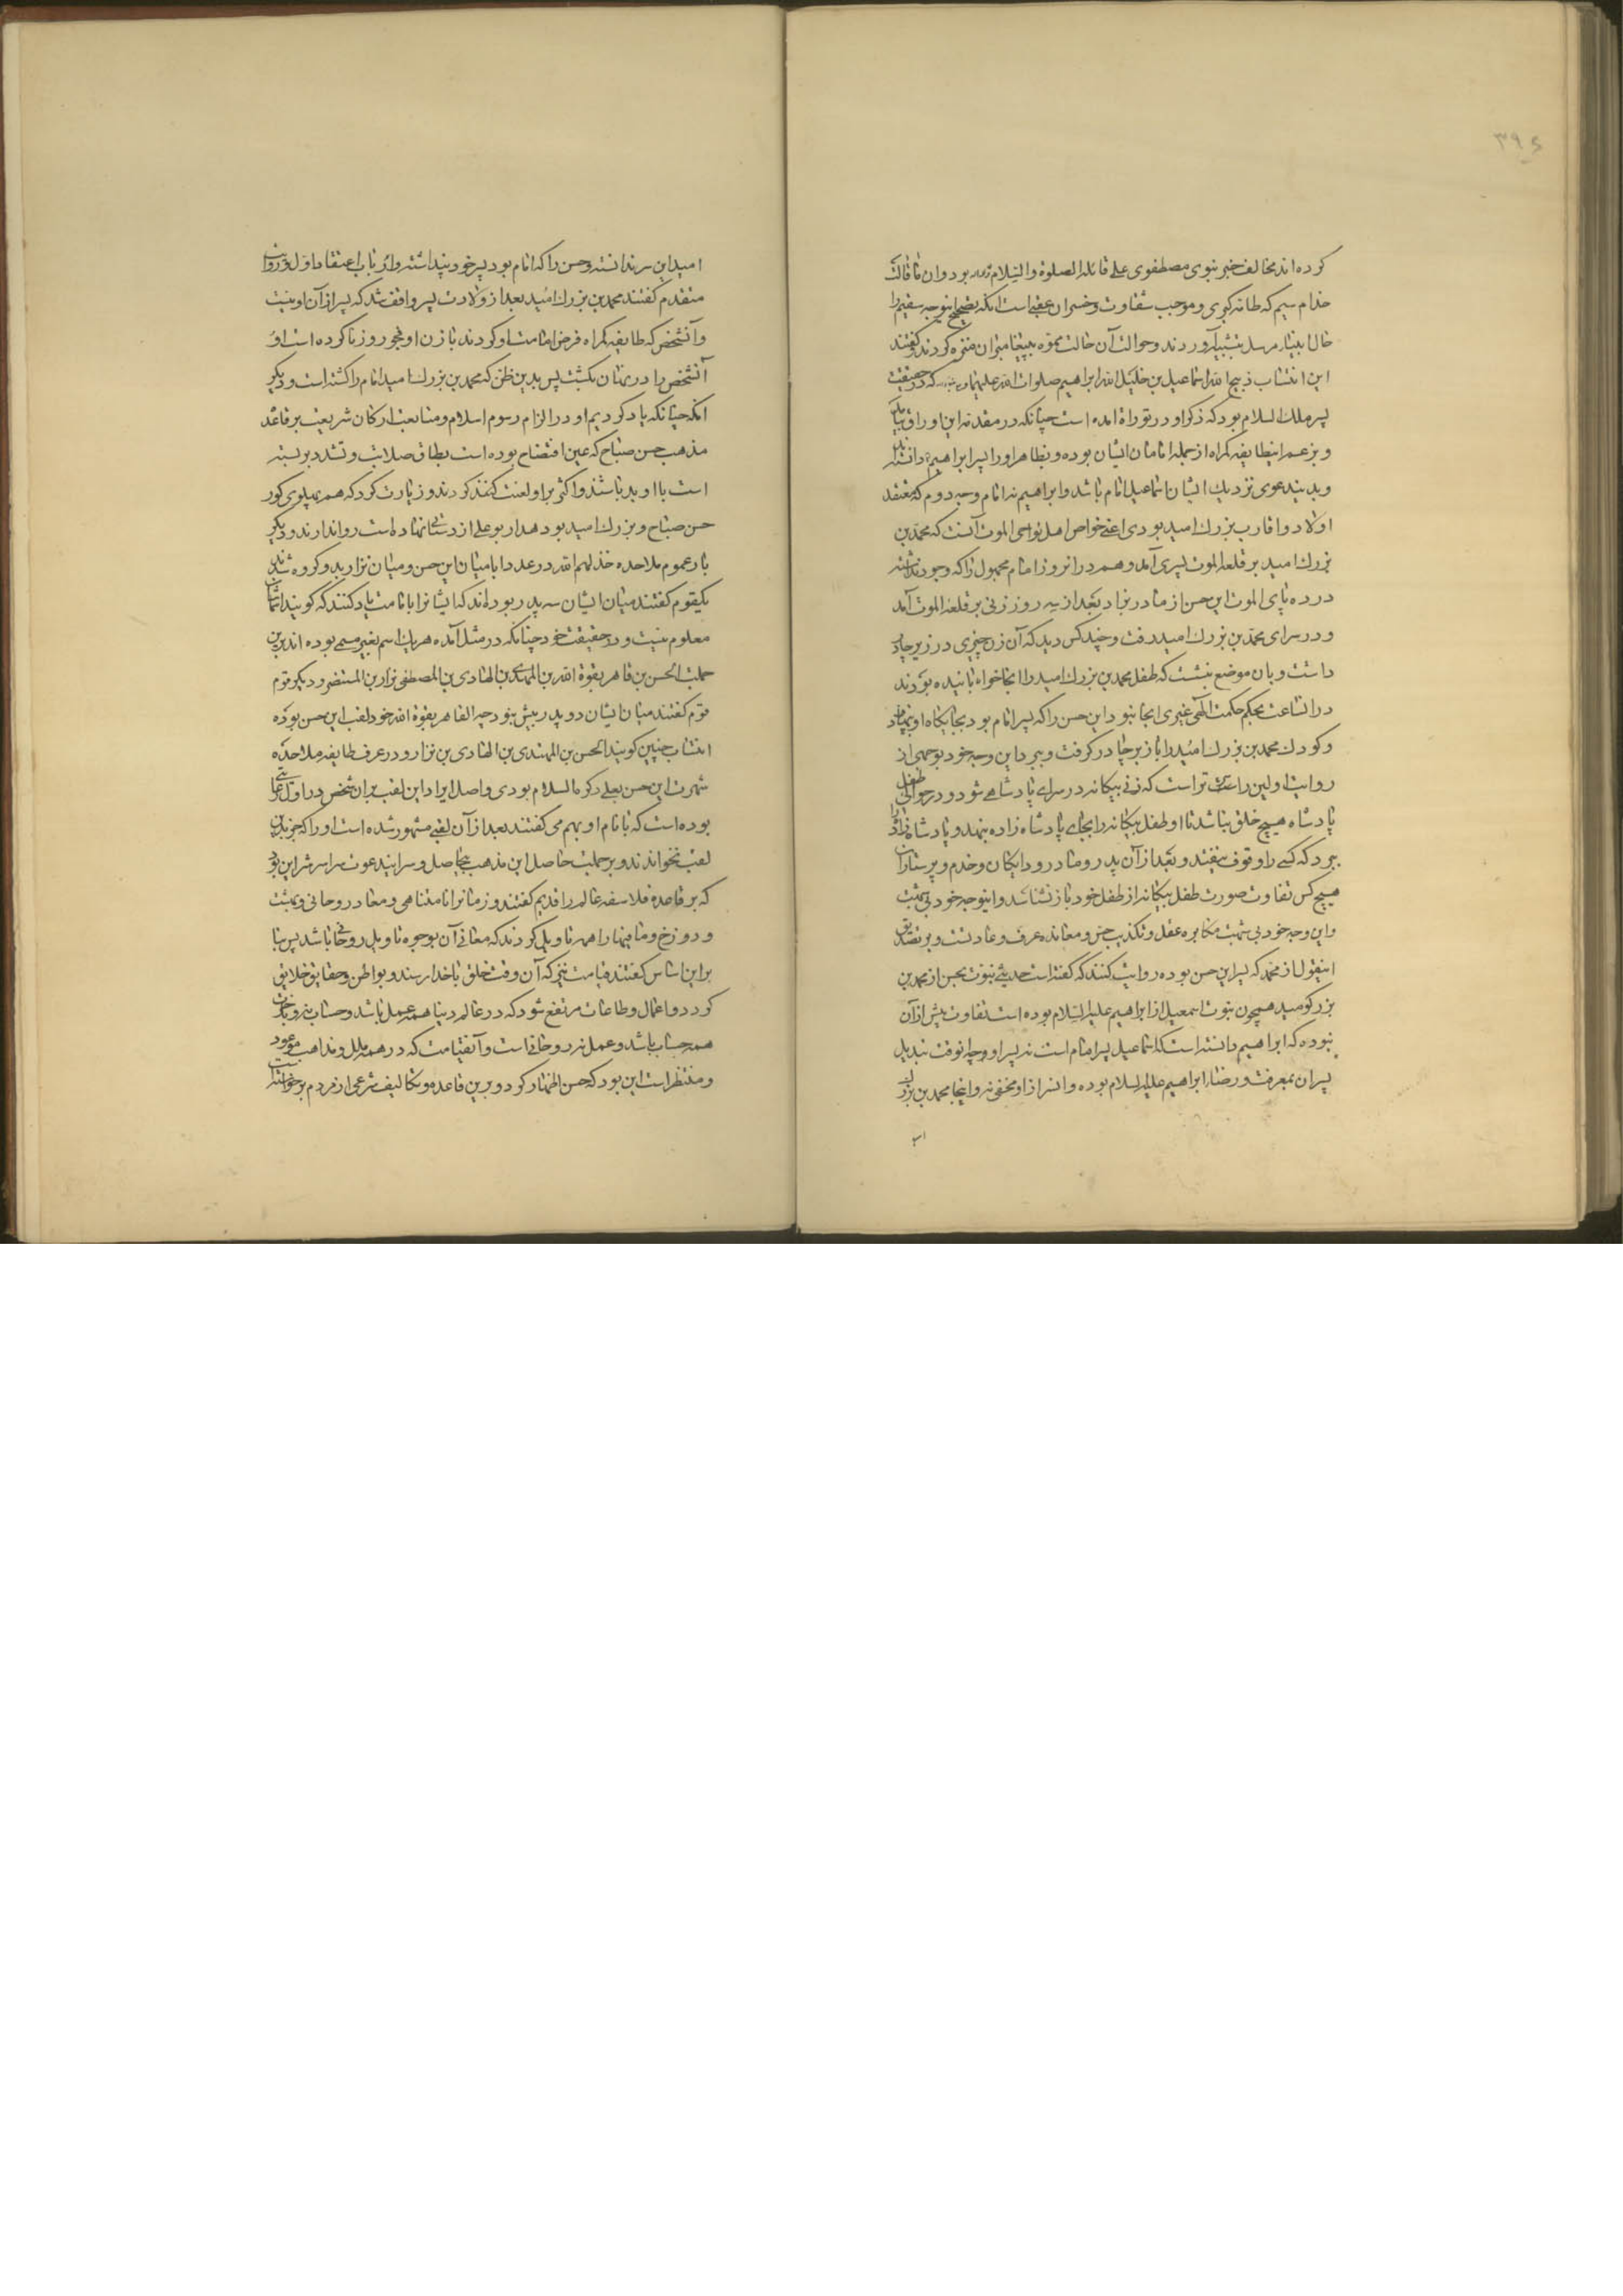 ۳۹۵
کرده اند مخالف خبر نبوی مصطفوی علی قائله الصلوة والسلام بود و ان ما قالت
خذام سیم که طامه کبری و موجب شقاوت و خسران عقبی است انکه تصحیح اینوجه سقیم را
حال انبیاء مرسل بتشبیه آوردند و حوالت آن حالت مموه به پیغامبران منزه کردند و گفتند
این انتساب ذبیح الله اسماعیل بن خلیل الله ابراهیم صلوات الله علیهما که در حقیقت
پسر ملک السلام بود که ذکر او در توراة امده است چنانکه در مقدمه این اوراق
و بزعم اینطایفه گمراه از جمله امامان ایشان بوده و بظاهر او را پسر ابراهیم دانسته
و بدیندعوی نزدیک ایشان اسماعیل امام باشد و ابراهیم نه امام وجه دوم که معتقد
اولاد و اقارب بزرك امید بودی اعنی خواص اهل نواحی الموت آنست که محمد بن
بزرك امید بر قلعه الموت پسری آمد و هم در انروز امام مجهول را که وجود نداشته
در ده پای الموت این حسن از مادر بزاد بعد از سه روز زنی بر قلعه الموت آمد
و در سرای محمد بن بزرك امید رفت و چند کس دید که آن زن چیزی در زیر چادر
داشت و بان موضع بنشست که طفل محمد بن بزرك امید را انجا خوابانیده بودند
در انساعت بحکم حکمت الهی غیری انجا نبود این حسن را که پسر امام بود بجایگاه او بنهاد
و کودك محمد بن بزرك امید را باز بر چادر گرفت و ببرد این وجه خود بوجهی از
روایت اولین راست تر است که زنی بیگانه در سرای پادشاهی شود و در حوالی طفل
پادشاه هیچ خلق نباشد تا او طفل بیگانه را بجای پادشاه زاده بنهد و پادشاه زاده را
ببرد که کسی را وقوف نیفتد و بعد از آن پدر و مادر و دایگان و خدم و پرستاران
هیچ کس تفاوت صورت طفل بیگانه از طفل خود باز نشناسد و اینوجه خود بی تهمت
و این وجه خود بی تهمت مکابره عقل و تکذیب حس و معانده عرف و عادتست و بر تصدیق
اینقول از محمد که پسر این حسن بوده روایت کنند که گفته است حدیث بنوت حسن از محمد بن
بزرکومید همچون بنوت اسمعیل از ابراهیم علیه السلام بوده است تفاوت بیش از آن
نبوده که ابراهیم دانسته است که اسماعیل پسر امام است نه پسر او و چه انوقت تبدیل
پسران بمعرفت و رضاء ابراهیم علیه السلام بوده و انسر از او مخفی نه و اینجا محمد بن بزرك
امید این سر ندانسته و حسن را که امام بود پسر خود پنداشته و ارباب اعتقاد اول و روایت
متقدم گفتند محمد بن بزرك امید بعد از ولادت پسر واقف شد که پسر از آن او نیست
و آنشخص که طایفه گمراه فرض امامت او کردند با زن او فجور و زنا کرده است او
آنشخص را در نهان بکشت پس بدین ظن که محمد بن بزرك امید امام را کشته است و دیگر
انکه چنانکه یاد کردیم او در الزام رسوم اسلام و متابعت ارکان شریعت بر قاعده
مذهب حسن صباح که عین افتضاح بوده است بطاق صلابت و تشدد بر بسته
است با او بد باشند و اکثر بر او لعنت کنند کردند و زیارت کرد که هم بپهلوی گور
حسن صباح و بزرك امید بود هدار بو علی اردستانی نهاده است روا ندارند و دیگر
بار عموم ملاحده خذلهم الله در عدد ابا میان این حسن و میان نزار بدو گروه شده اند
یکقوم گفتند میان ایشان سه پدر بوده اند که ایشانرا بامامت یاد کنند که گویند اسماشان
معلوم نیست و در حقیقت خود چنانکه در مثل آمده هر یك اسم بغیر مسمی بوده اند برین
جملت الحسن بن قاهر بقوة الله بن المهتدی بن الهادی بن المصطفی نزار بن المستنصر و دیگر قوم
قوم گفتند میان ایشان دو پدر بیش نبود چه القاهر بقوة الله خود لقب این حسن بوده
انتساب چنین گویند الحسن بن المهتدی بن الهادی بن نزار و در عرف طایفه ملاحده
شهرت این حسن بعلی ذکره السلام بودی و اصل ایراد این لقب بران شخص در اول دعائی
بوده است که با نام او بهم می گفتند بعد از آن لقبی مشهور شده است او را که جز بدین
لقب نخواندند و بر جملت حاصل این مذهب بیحاصل و سر ایندعوت سراسر شر این بود
که بر قاعده فلاسفه عالم را قدیم گفتند و زمانرا نامتناهی و معاد روحانی و بهشت
و دوزخ و ما فیها را همه تاویل کردند که معانی آن بوجوه تاویل روحانی باشد پس بنا
بر این اساس گفتند قیامت نیز که آن وقت خلق با خدا رسند و بواطن و حقایق خلایق
گردد و اعمال و طاعات مرتفع شود که در عالم دنیا همه عمل باشد و حساب نه و در آخرت
همه حساب باشد و عمل نه روحانی است و آنقیامت که در همه ملل و مذاهب موعود
و منتظر است این بود که حسن اظهار کرد و برین قاعده تکالیف شرعی از مردم برخواسته است